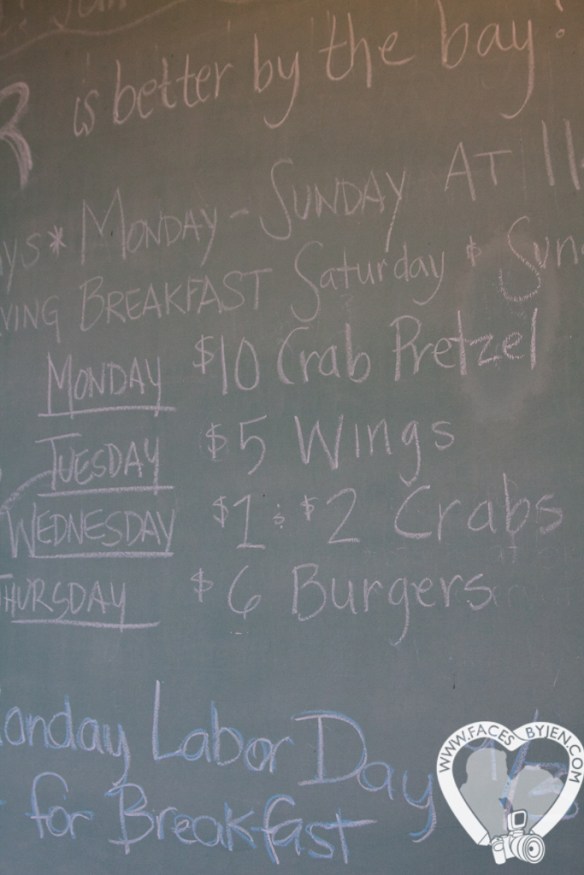 is better by the bay!
MONDAY - SUNDAY AT 11
BREAKFAST Saturday & Sun
MONDAY $10 Crab Pretzel
TUESDAY $5 Wings
WEDNESDAY $1 & $2 Crabs
THURSDAY $6 Burgers
onday Labor Day
for Breakfast
WWW.FACES BYJEN.COM